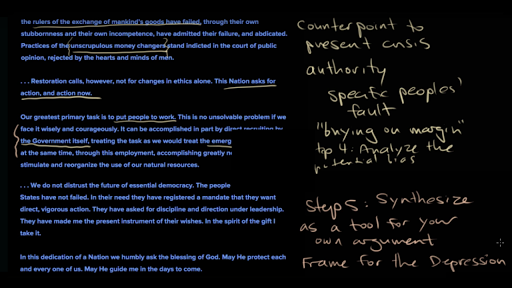 the rulers of the exchange of mankind's goods have failed, through their own
stubbornness and their own incompetence, have admitted their failure, and abdicated.
Practices of the unscrupulous money changers stand indicted in the court of public
opinion, rejected by the hearts and minds of men.
. . . Restoration calls, however, not for changes in ethics alone. This Nation asks for
action, and action now.
Our greatest primary task is to put people to work. This is no unsolvable problem if we
face it wisely and courageously. It can be accomplished in part by direct recruiting by
the Government itself, treating the task as we would treat the emerg
at the same time, through this employment, accomplishing greatly n
stimulate and reorganize the use of our natural resources.
. . . We do not distrust the future of essential democracy. The people
States have not failed. In their need they have registered a mandate that they want
direct, vigorous action. They have asked for discipline and direction under leadership.
They have made me the present instrument of their wishes. In the spirit of the gift I
take it.
In this dedication of a Nation we humbly ask the blessing of God. May He protect each
and every one of us. May He guide me in the days to come.
Counterpoint to
present crisis
authority
specific peoples'
fault
"buying on margin"
tep 4: Analyze the
potential bias
Step 5: Synthesize
as a tool for your
own argument
Frame for the Depression